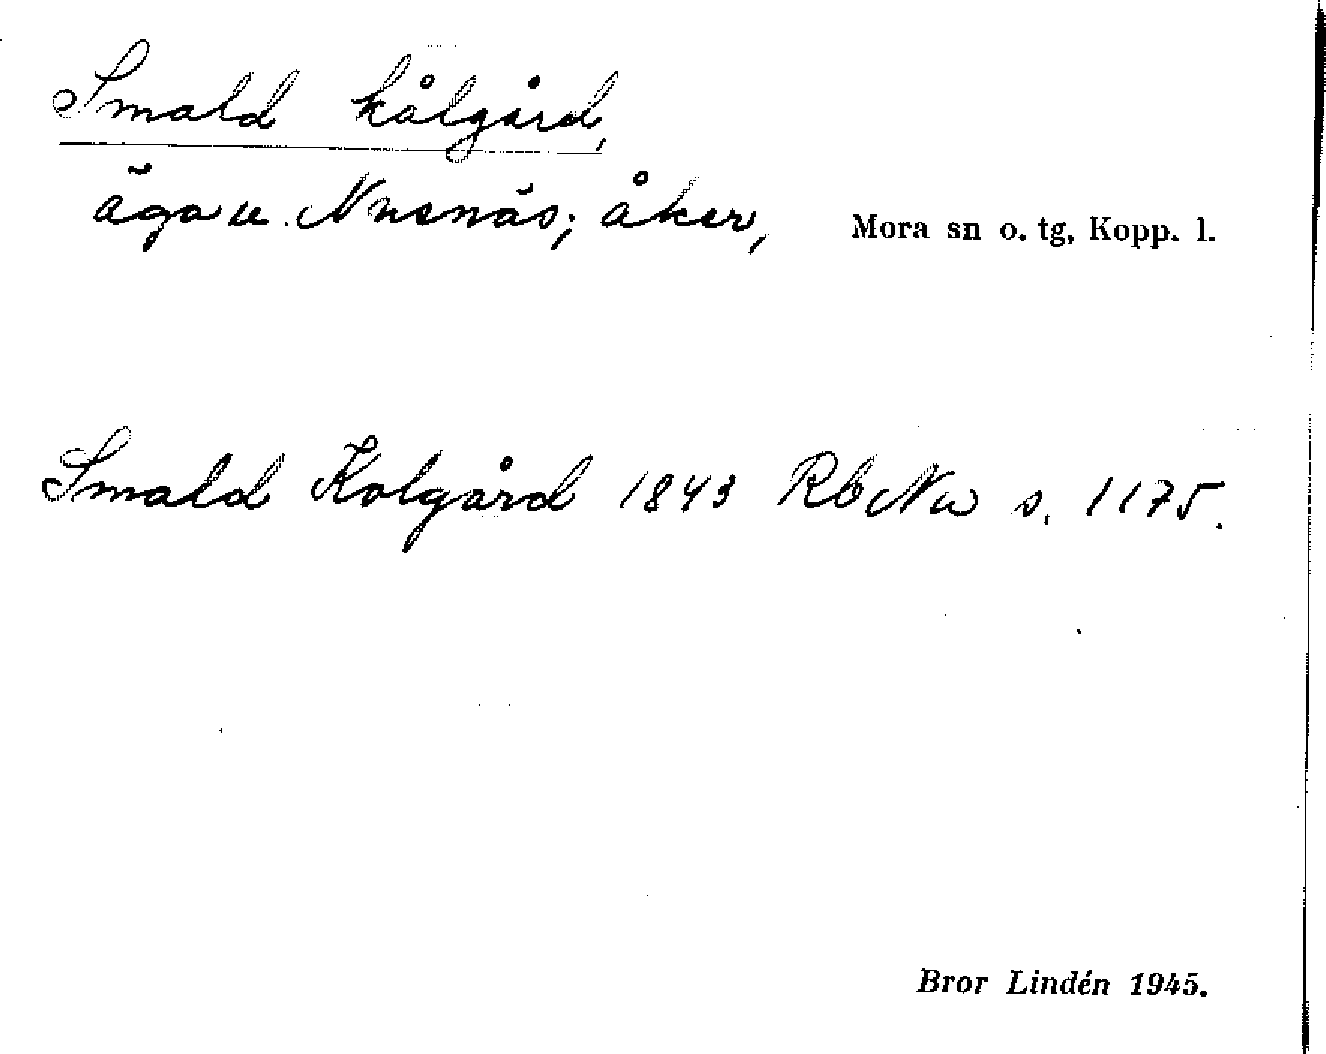 Smald kålgård,
äga u. Nusnäs; åker, Mora sn o. tg, Kopp. l.
Smald Kolgård 1843 RbNu s. 1175.
Bror Lindén 1945.